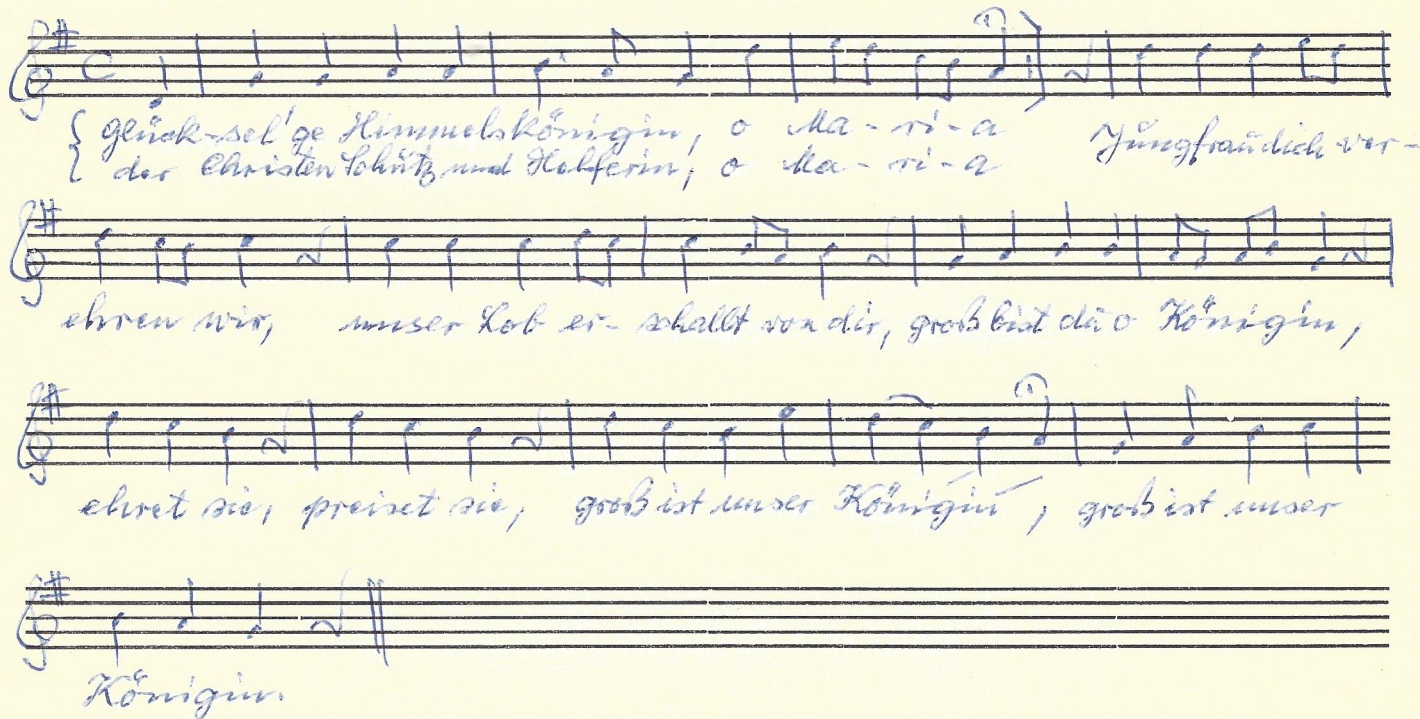 Glück-sel'ge Himmelskönigin, o Ma-ri-a Jungfrau dich ver-
der Christen Schütz und Helferin, o Ma-ri-a
ehren wir, unser Lob er-schallt von dir, groß bist du o Königin,
ehret sie, preiset sie, groß ist unser Königin, groß ist unser
Königin.